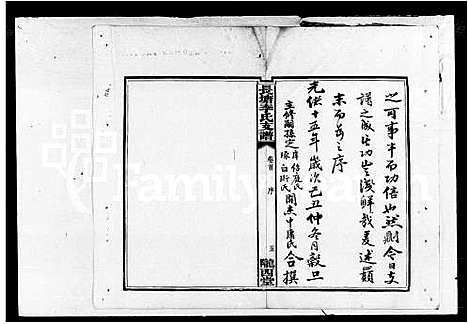 之可事半而功倍也然則今日支
譜之成其功豈淺鮮哉爰述顛
末而為之序
光緒十五年歲次己丑仲冬月穀旦
主修嗣孫定
合撰
長塘李氏支譜
卷首
序
五
隴西堂
FamilySearch